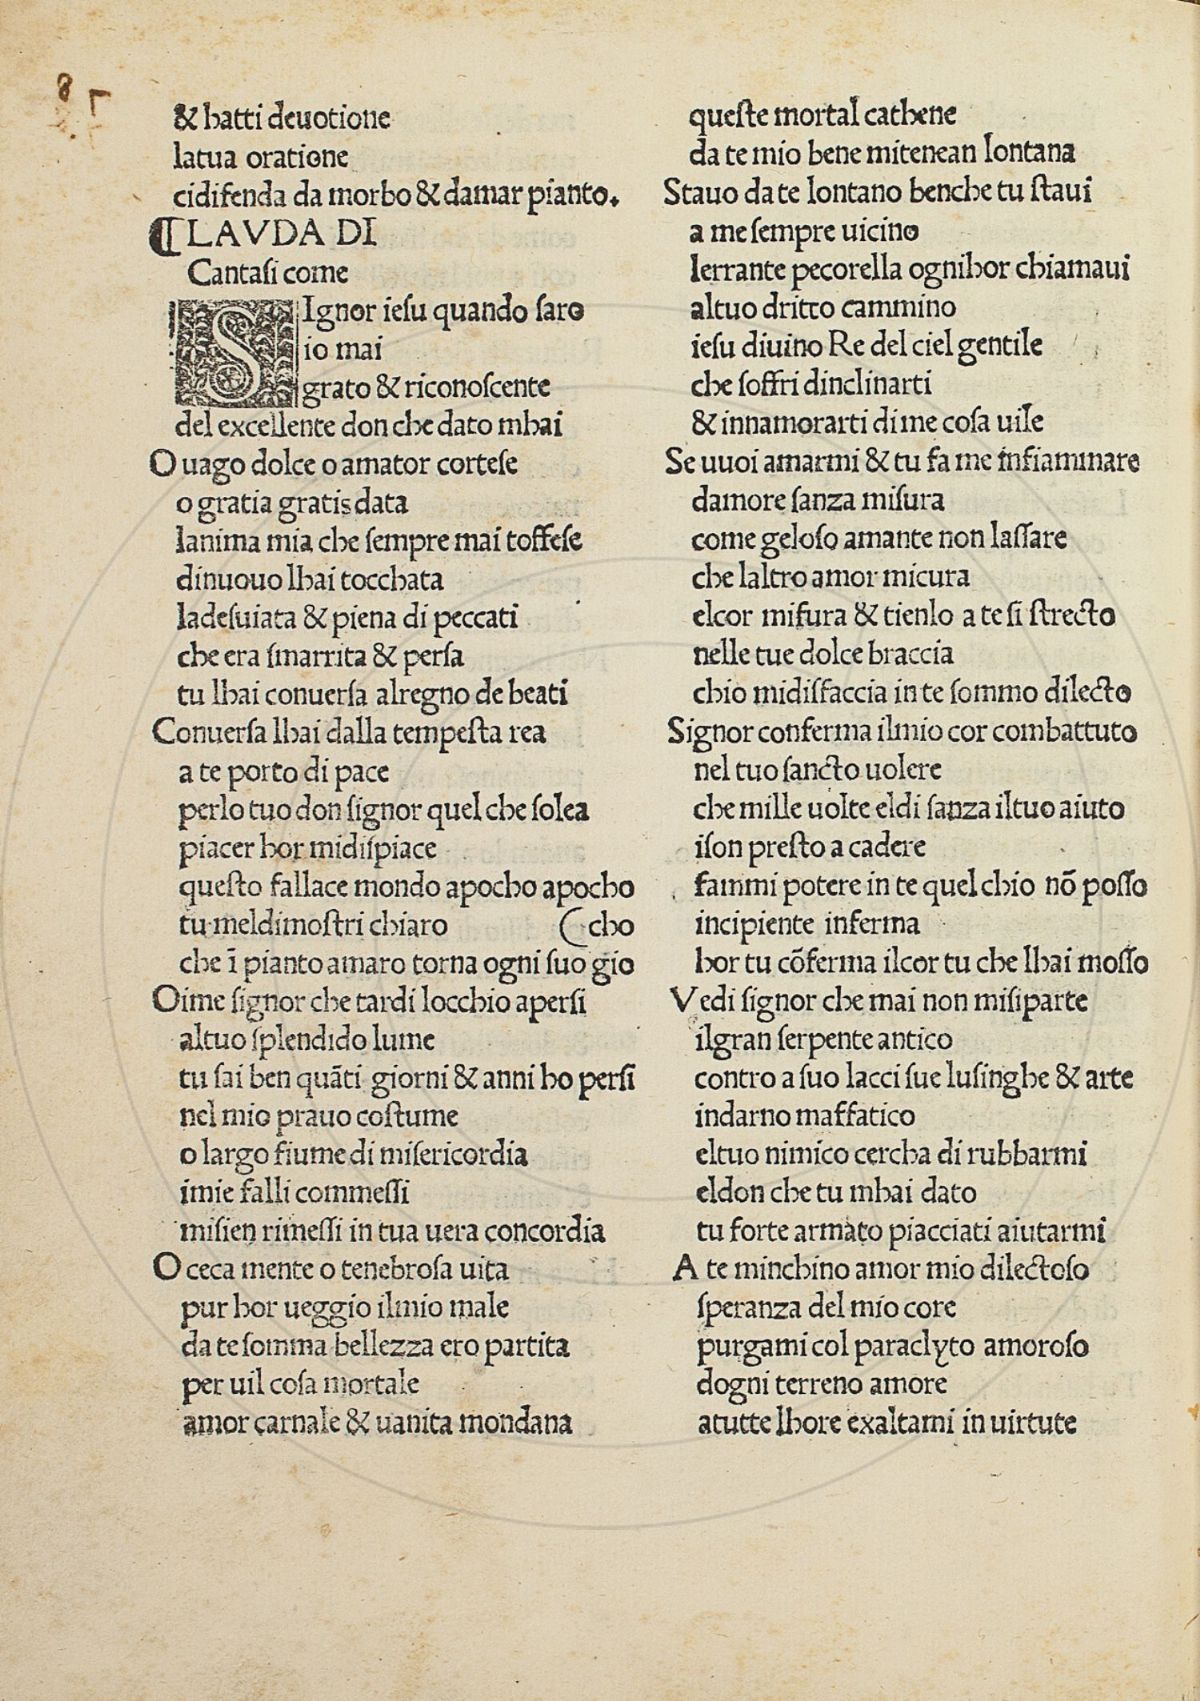 8
& hatti deuotione
latua oratione
cidifenda da morbo & damar pianto.
¶ LAVDA DI
Cantasi come
SIgnor iesu quando saro
io mai
grato & riconoscente
del excellente don che dato mhai
O uago dolce o amator cortese
o gratia gratis data
lanima mia che sempre mai toffese
dinuouo lhai tocchata
ladesuiata & piena di peccati
che era smarrita & persa
tu lhai conuersa alregno de beati
Conuersa lhai dalla tempesta rea
a te porto di pace
perlo tuo don signor quel che solea
piacer hor midispiace
questo fallace mondo apocho apocho
tu meldimostri chiaro (cho
che ī pianto amaro torna ogni suo gio
Oime signor che tardi locchio apersi
altuo splendido lume
tu sai ben quāti giorni & anni ho persi
nel mio prauo costume
o largo fiume di misericordia
imie falli commessi
misien rimessi in tua uera concordia
O ceca mente o tenebrosa uita
pur hor ueggio ilmio male
da te somma bellezza ero partita
per uil cosa mortale
amor carnale & uanita mondana
queste mortal cathene
da te mio bene mitenean lontana
Stauo da te lontano benche tu staui
a me sempre uicino
lerrante pecorella ognihor chiamaui
altuo dritto cammino
iesu diuino Re del ciel gentile
che soffri dinclinarti
& innamorarti di me cosa uile
Se uuoi amarmi & tu fa me infiammare
damore sanza misura
come geloso amante non lassare
che laltro amor micura
elcor mifura & tienlo a te si strecto
nelle tue dolce braccia
chio midisfaccia in te sommo dilecto
Signor conferma ilmio cor combattuto
nel tuo sancto uolere
che mille uolte eldi sanza iltuo aiuto
ison presto a cadere
fammi potere in te quel chio nō posso
incipiente inferma
hor tu cōferma ilcor tu che lhai mosso
Vedi signor che mai non misiparte
ilgran serpente antico
contro a suo lacci sue lusinghe & arte
indarno maffatico
eltuo nimico cercha di rubbarmi
eldon che tu mhai dato
tu forte armato piacciati aiutarmi
A te minchino amor mio dilectoso
speranza del mio core
purgami col paraclyto amoroso
dogni terreno amore
atutte lhore exaltami in uirtute